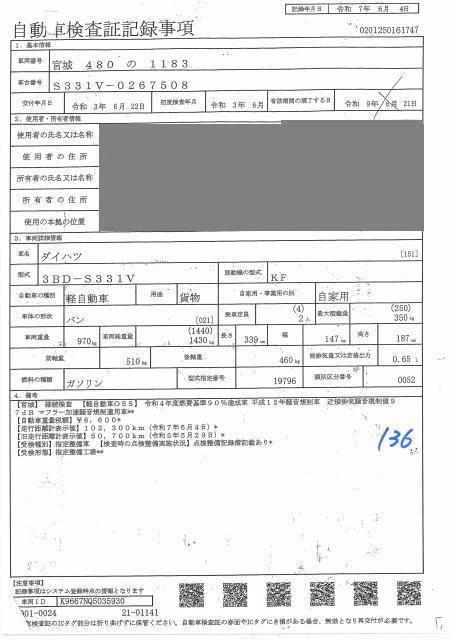 記録年月日 令和 7年 6月 4日
自動車検査証記録事項
0201250161747
1. 基本情報
車両番号 宮城 480 の 1183
車台番号 S331V-0267508
交付年月日 令和 3年 6月 22日 初度検査年月 令和 3年 6月 有効期間の満了する日 令和 9年 6月 21日
2. 使用者・所有者情報
使用者の氏名又は名称
使用者の住所
所有者の氏名又は名称
所有者の住所
使用の本拠の位置
3. 車両詳細情報
車名 ダイハツ [151]
型式 3BD-S331V 原動機の型式 KF
自動車の種別 軽自動車 用途 貨物 自家用・事業用の別 自家用
車体の形状 バン [021] 乗車定員 (4) 2人 最大積載量 (250) 350kg
車両重量 970kg 車両総重量 (1440) 1430kg 長さ 339cm 幅 147cm 高さ 187cm
前軸重 510kg 後軸重 460kg 総排気量又は定格出力 0.65 L
燃料の種類 ガソリン 型式指定番号 19796 類別区分番号 0052
4. 備考
[宮城] 継続検査 [軽自動車OSS] 令和4年度燃費基準90%達成車 平成12年騒音規制車 近接排気騒音規制値9
7dB マフラー加速騒音規制適用車**
[自動車重量税額] ¥6,600*
[走行距離計表示値] 102,300km (令和7年6月4日) *
[旧走行距離計表示値] 50,700km (令和5年5月29日) *
[受検種別] 指定整備車 [検査時の点検整備実施状況] 点検整備記録簿記載あり*
[受検形態] 指定整備工場**
136
[注意事項]
記録事項はシステム登録時点の情報となります
車両ID K9667NQ5035930
001-0024 21-01141
検査証のICタグ部分は折り曲げずに保管ください。自動車検査証の券面やICタグにき損がある場合、無効となり再交付が必要です。